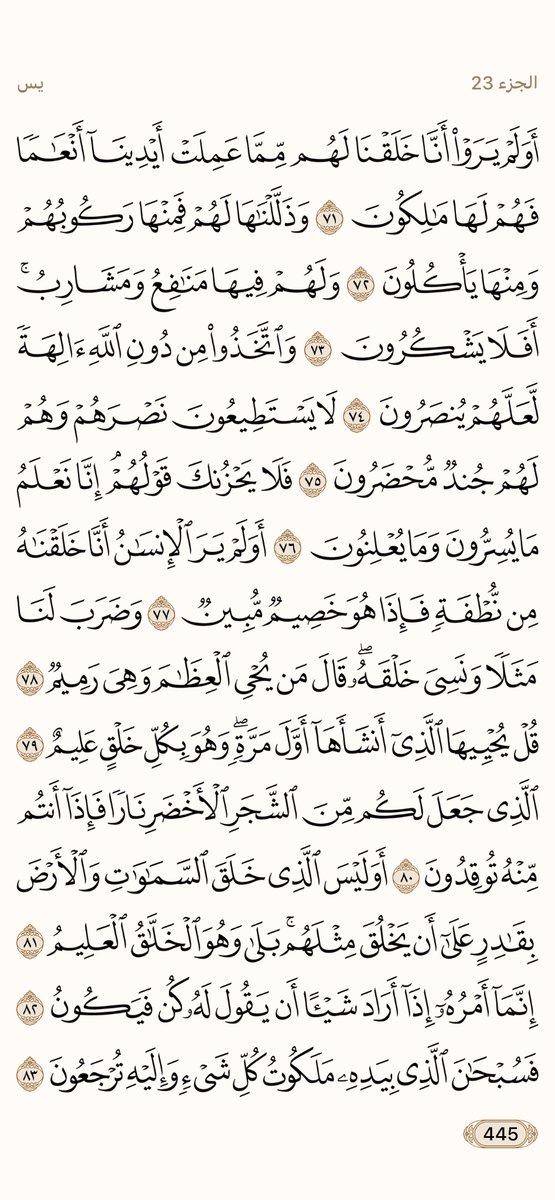 الجزء 23 يس
أَوَلَمْ يَرَوْا۟ أَنَّا خَلَقْنَا لَهُم مِّمَّا عَمِلَتْ أَيْدِينَآ أَنْعَـٰمًا
فَهُمْ لَهَا مَـٰلِكُونَ ٧١ وَذَلَّلْنَـٰهَا لَهُمْ فَمِنْهَا رَكُوبُهُمْ
وَمِنْهَا يَأْكُلُونَ ٧٢ وَلَهُمْ فِيهَا مَنَـٰفِعُ وَمَشَارِبُ ۚ
أَفَلَا يَشْكُرُونَ ٧٣ وَٱتَّخَذُوا۟ مِن دُونِ ٱللَّهِ ءَالِهَةً
لَّعَلَّهُمْ يُنصَرُونَ ٧٤ لَا يَسْتَطِيعُونَ نَصْرَهُمْ وَهُمْ
لَهُمْ جُندٌ مُّحْضَرُونَ ٧٥ فَلَا يَحْزُنكَ قَوْلُهُمْ ۘ إِنَّا نَعْلَمُ
مَا يُسِرُّونَ وَمَا يُعْلِنُونَ ٧٦ أَوَلَمْ يَرَ ٱلْإِنسَـٰنُ أَنَّا خَلَقْنَـٰهُ
مِن نُّطْفَةٍ فَإِذَا هُوَ خَصِيمٌ مُّبِينٌ ٧٧ وَضَرَبَ لَنَا
مَثَلًا وَنَسِىَ خَلْقَهُۥ ۖ قَالَ مَن يُحْىِ ٱلْعِظَـٰمَ وَهِىَ رَمِيمٌ ٧٨
قُلْ يُحْيِيهَا ٱلَّذِىٓ أَنشَأَهَآ أَوَّلَ مَرَّةٍ ۖ وَهُوَ بِكُلِّ خَلْقٍ عَلِيمٌ ٧٩
ٱلَّذِى جَعَلَ لَكُم مِّنَ ٱلشَّجَرِ ٱلْأَخْضَرِ نَارًا فَإِذَآ أَنتُم
مِّنْهُ تُوقِدُونَ ٨٠ أَوَلَيْسَ ٱلَّذِى خَلَقَ ٱلسَّمَـٰوَٰتِ وَٱلْأَرْضَ
بِقَـٰدِرٍ عَلَىٰٓ أَن يَخْلُقَ مِثْلَهُم ۚ بَلَىٰ وَهُوَ ٱلْخَلَّـٰقُ ٱلْعَلِيمُ ٨١
إِنَّمَآ أَمْرُهُۥٓ إِذَآ أَرَادَ شَيْـًٔا أَن يَقُولَ لَهُۥ كُن فَيَكُونُ ٨٢
فَسُبْحَـٰنَ ٱلَّذِى بِيَدِهِۦ مَلَكُوتُ كُلِّ شَىْءٍ وَإِلَيْهِ تُرْجَعُونَ ٨٣
445